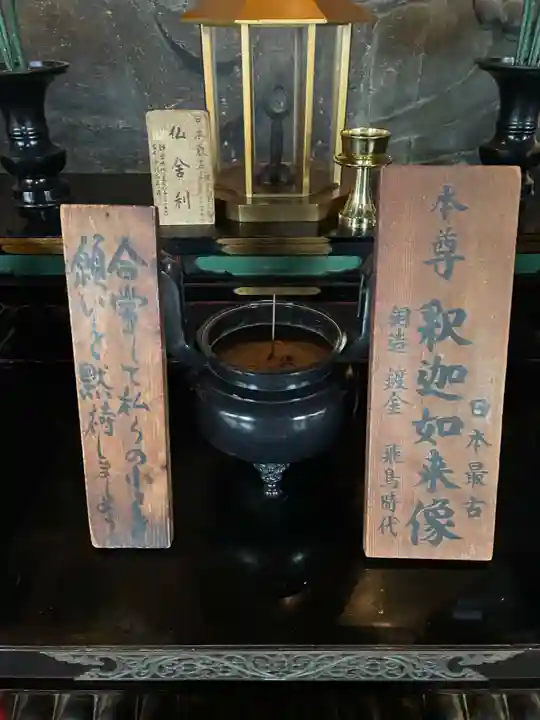 本尊 釈迦如来像
日本最古
銅造 鍍金 飛鳥時代
仏舎利
日本最古
合掌して私らの小さな
願いを黙祷しましょう